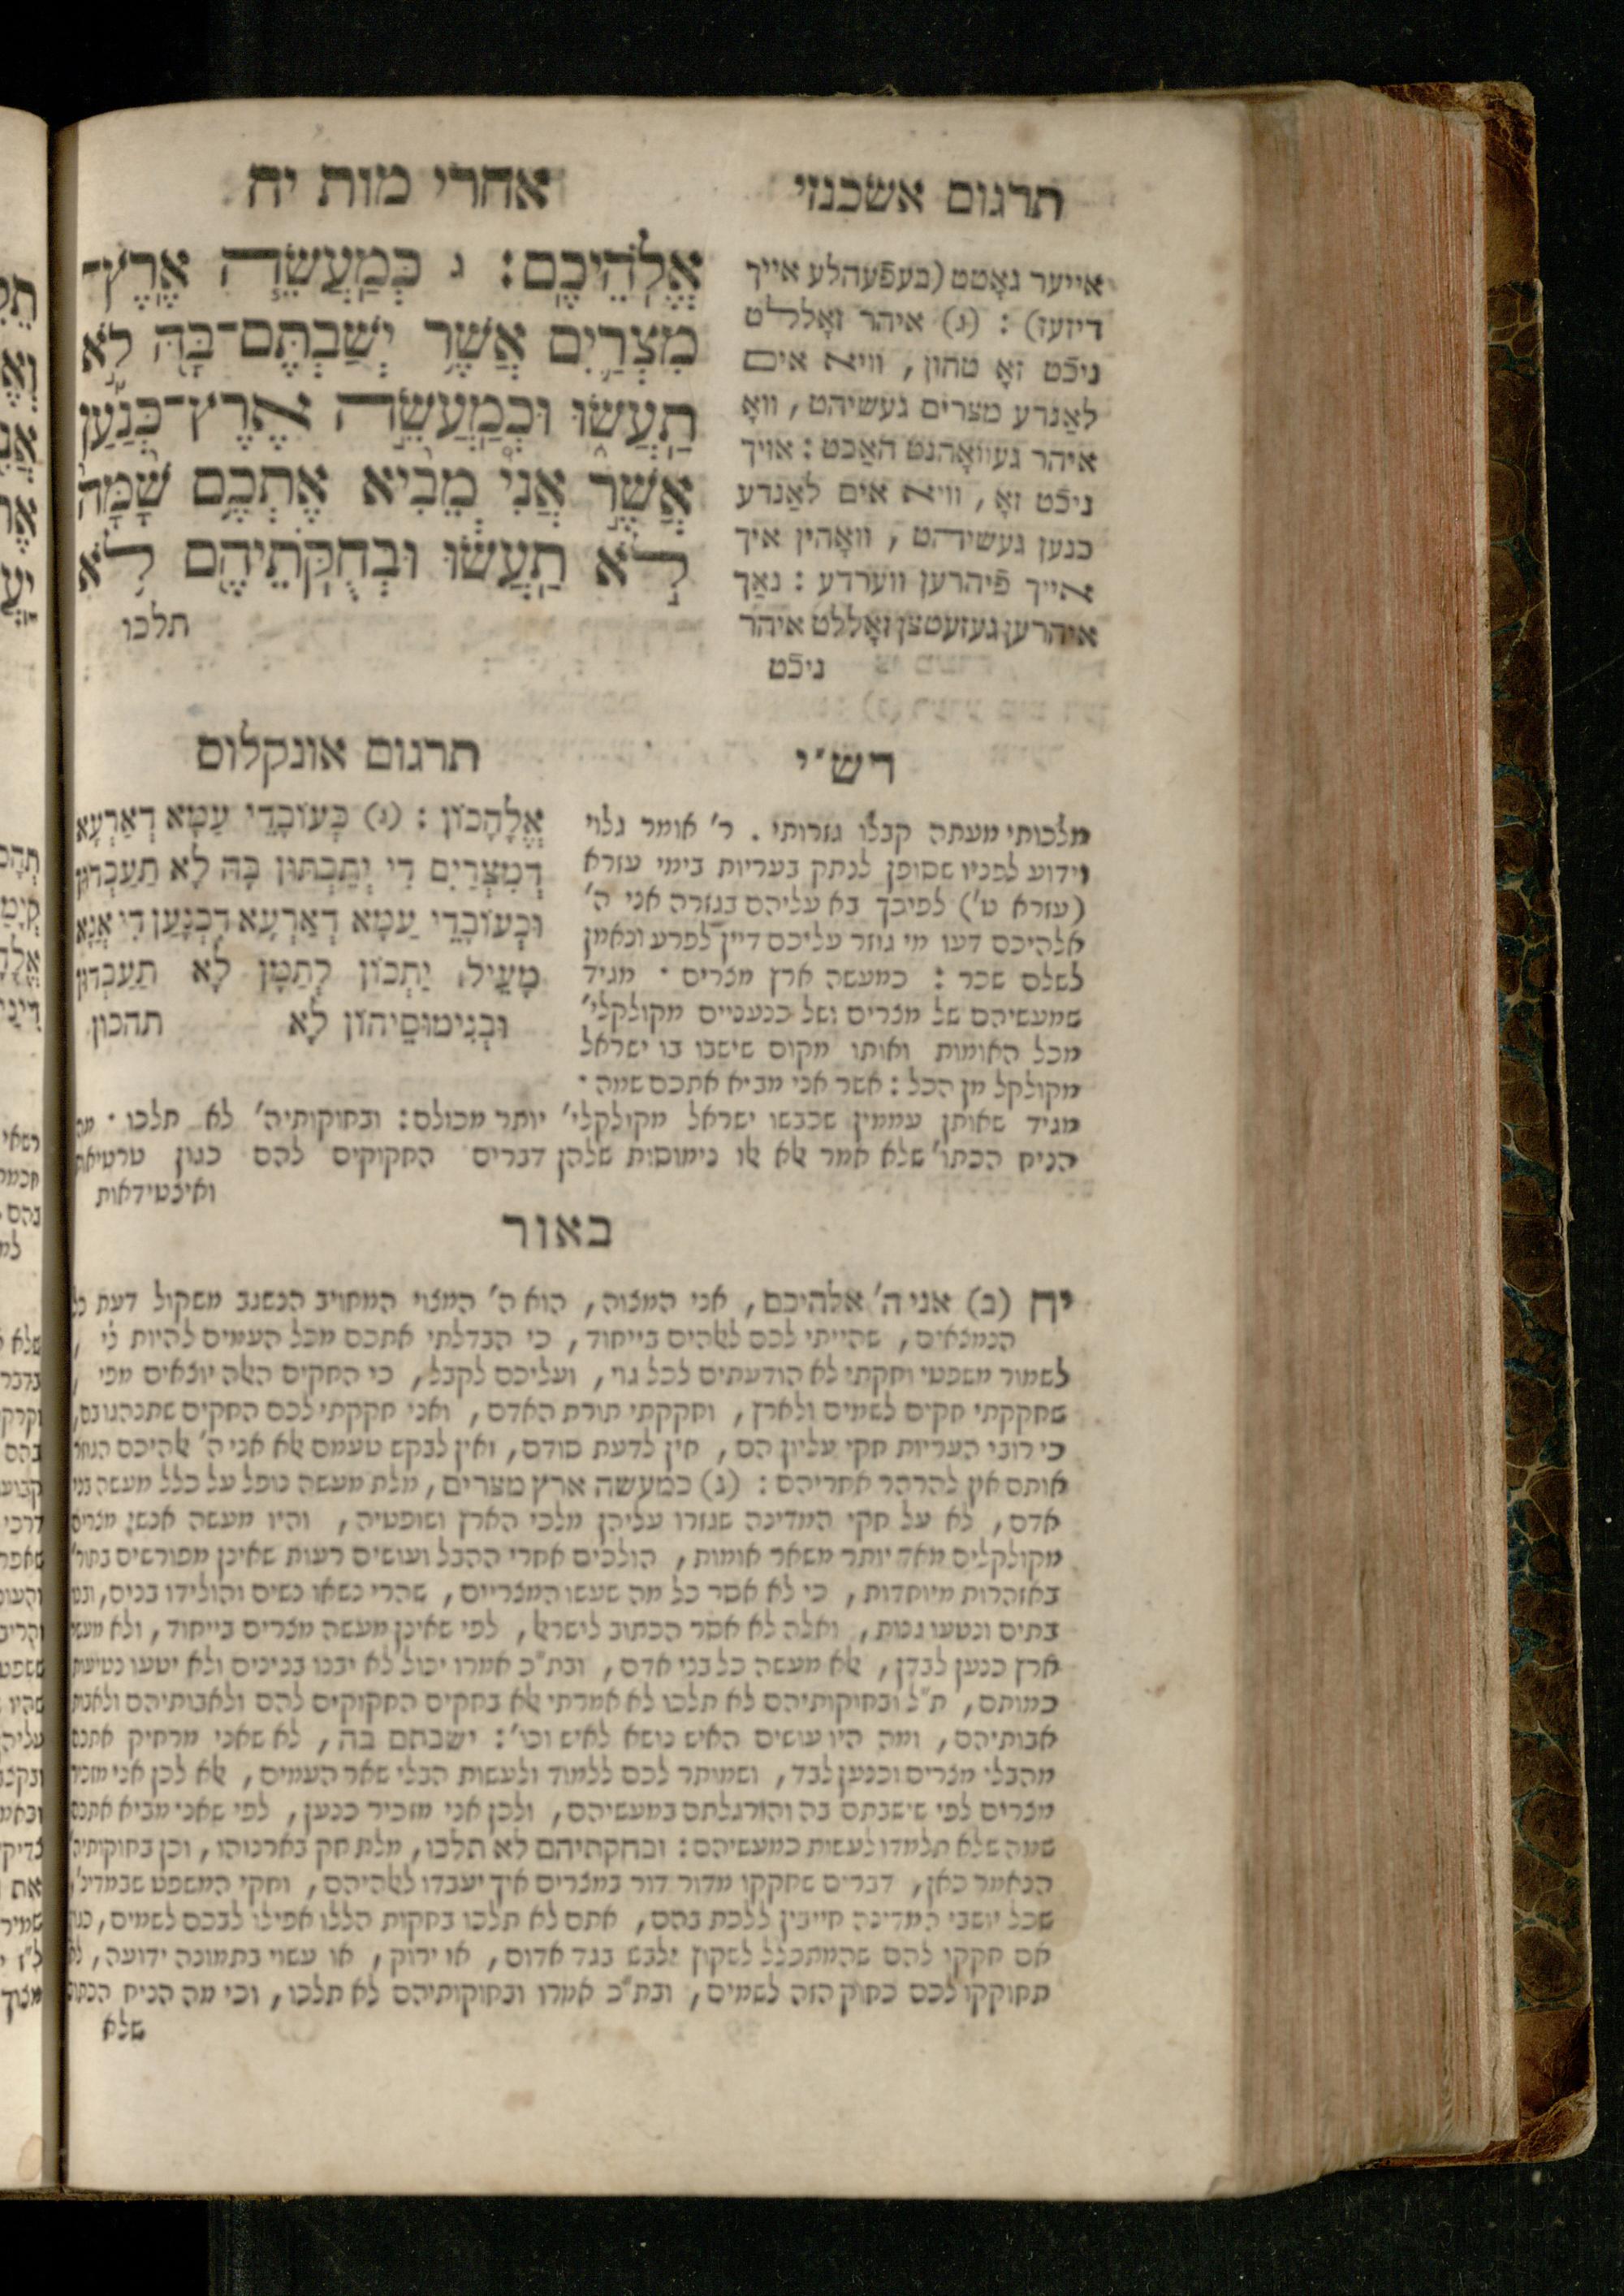 תרגום אשכנזי
אחרי מות יח
אֱלֹהֵיכֶם׃ ג כְּמַעֲשֵׂה אֶרֶץ־
מִצְרַיִם אֲשֶׁר יְשַׁבְתֶּם־בָּהּ לֹא
תַעֲשׂוּ וּכְמַעֲשֵׂה אֶרֶץ־כְּנַעַן
אֲשֶׁר אֲנִי מֵבִיא אֶתְכֶם שָׁמָּה
לֹא תַעֲשׂוּ וּבְחֻקֹּתֵיהֶם לֹא
תלכו
אייער גאָטט (בעפֿעהלע אייך
דיזעז) : (ג) איהר זאָללט
ניכֿט זאָ טהון, וויא אים
לאַנדע מצרים געשיהט, וואָ
איהר געוואָהנט האַבט : אויך
ניכֿט זאָ, וויא אים לאַנדע
כנען געשיהט, וואָהין איך
אייך פֿיהרען ווערדע : נאַך
איהרען געזעטצן זאָללט איהר
ניכֿט
תרגום אונקלוס
אֱלָהָכוֹן : (ג) כְּעוֹבָדֵי עַמָּא דְאַרְעָא
דְמִצְרַיִם דִי יְתֵבְתּוּן בָּהּ לָא תַעַבְּדוּן
וּכְעוֹבָדֵי עַמָּא דְאַרְעָא דִכְנַעַן דִי אֲנָא
מָעֵיל יַתְכוֹן לְתַמָּן לָא תַעַבְּדוּן
וּבְנִימוֹסֵיהוֹן לָא תהכון
רש״י
מלכותי מעתה קבלו גזרותי . ר׳ אומר גלוי
וידוע לפניו שסופן לנתק בעריות בימי עזרא
(עזרא ט׳) לפיכך בא עליהם בגזרה אני ה׳
אלהיכם דעו מי גוזר עליכם דיין לפרע ונאמן
לשלם שכר : כמעשה ארץ מצרים · מגיד
שמעשיהם של מצרים ושל כנעניים מקולקלי׳
מכל האומות ואותו מקום שישבו בו ישראל
מקולקל מן הכל : אשר אני מביא אתכם שמה ·
מגיד שאותן עממין שכבשו ישראל מקולקלי׳ יותר מכולם : ובחוקותיה׳ לא תלכו · מה
הניח הכתו׳ שלא אמר אלא אלו נימוסות שלהן דברים החקוקים להם כגון טרטיאות
ואיצטידאות
באור
יח (ב) אני ה׳ אלהיכם, אני המצוה, הוא ה׳ המצוי המחויב הנשגב משקול דעת כל
הנמצאים, שהייתי לכם לאלהים בייחוד, כי הבדלתי אתכם מכל העמים להיות לי,
לשמור משפטי וחקתי לא הודעתים לכל גוי, ועליכם לקבל, כי החקים האלה יוצאים מפי,
שחקקתי חקים לשמים ולארץ, וחקקתי תורת האדם, ואני חקקתי לכם החקים שתנהגו בם,
כי רובי העריות חקי עליון הם, אין לדעת סודם, ואין לבקש טעמם אלא אני ה׳ אלהיכם הגוזר
אותם אין להרהר אחריהם : (ג) כמעשה ארץ מצרים, מלת מעשה נופל על כלל מעשה בני
אדם, לא על חקי המדינה שגזרו עליהן מלכי הארץ ושופטיה, והיו מעשה אנשי מצרים
מקולקלים מאד יותר משאר אומות, הולכים אחרי ההבל ועושים רעות שאינן מפורשים בתור׳
באזהרות מיוחדות, כי לא אסר כל מה שעשו המצריים, שהרי נשאו נשים והולידו בנים, ובנו
בתים ונטעו גנות, ואלה לא אסר הכתוב לישראל, לפי שאינן מעשה מצרים בייחוד, ולא מעשי
ארץ כנען לבדן, אלא מעשה כל בני אדם, ובת״כ אמרו יכול לא יבנו בנינים ולא יטעו נטיעות
כמותם, ת״ל ובחוקותיהם לא תלכו לא אמרתי אלא בחקים החקוקים להם ולאבותיהם ולאבות
אבותיהם, ומה היו עושים האיש נושא לאיש וכו׳ : ישבתם בה, לא שאני מרחיק אתכם
מהבלי מצרים וכנען לבד, ושמותר לכם ללמוד ולעשות הבלי שאר העמים, אלא לכן אני מזכיר
מצרים לפי שישבתם בה והורגלתם במעשיהם, ולכן אני מזכיר כנען, לפי שאני מביא אתכם
שמה שלא תלמדו לעשות כמעשיהם : ובחקתיהם לא תלכו, מלת חק בארנוהו, וכן בחוקותיה׳
הנאמר כאן, דברים שחקקו מדור דור במצרים איך יעבדו לאלהיהם, וחקי המשפט שבמדינ׳,
שכל יושבי המדינה חייבין ללכת בהם, אתם לא תלכו בחקות הללו אפילו לבכם לשמים, כגון
אם חקקו להם שהמתפלל לשקוץ ילבש בגד אדום, או ירוק, או עשוי בתמונה ידועה, לא
תחוקקו לכם כחוק הזה לשמים, ובת״כ אמרו ובחוקותיהם לא תלכו, וכי מה הניח הכתוב
שלא